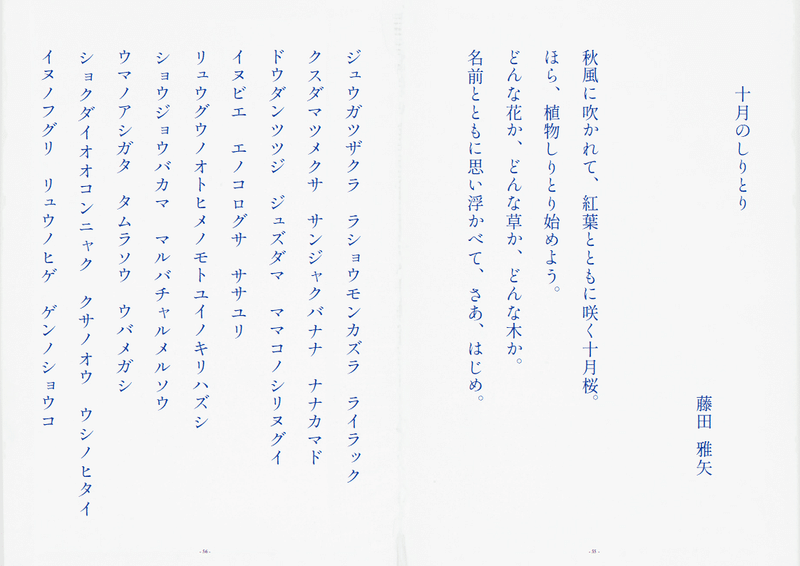 十月のしりとり
藤田 雅矢
秋風に吹かれて、紅葉とともに咲く十月桜。
ほら、植物しりとり始めよう。
どんな花か、どんな草か、どんな木か。
名前とともに思い浮かべて、さあ、はじめ。
ジュウガツザクラ ラショウモンカズラ ライラック
クスダマツメクサ サンジャクバナナ ナナカマド
ドウダンツツジ ジュズダマ ママコノシリヌグイ
イヌビエ エノコログサ ササユリ
リュウグウノオトヒメノモトユイノキリハズシ
ショウジョウバカマ マルバチャルメルソウ
ウマノアシガタ タムラソウ ウバメガシ
ショクダイオオコンニャク クサノオウ ウシノヒタイ
イヌノフグリ リュウノヒゲ ゲンノショウコ